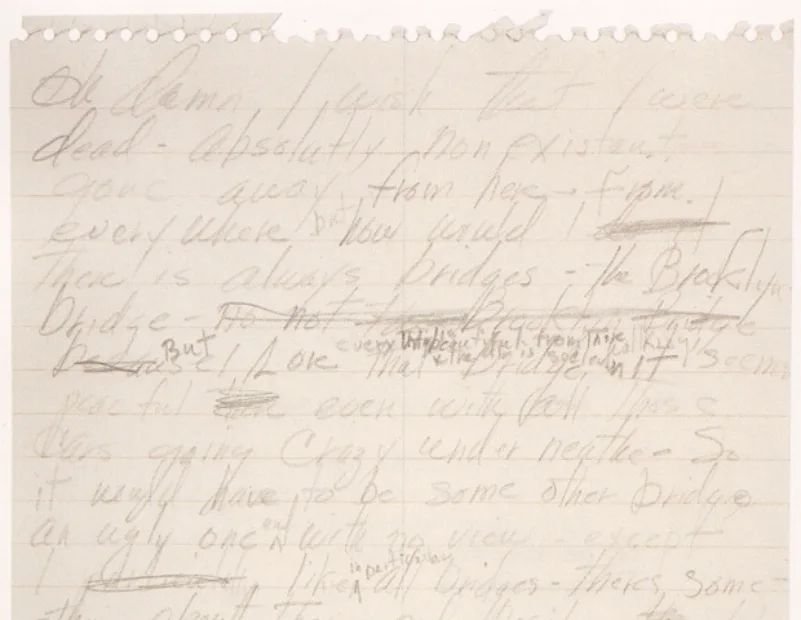 Oh damn I wish that I were
dead - absolutly non existent -
gone away from here - from
every where but how would I
There is always bridges - the Brooklyn
bridge - No not the Brooklyn Bridge
Because But I Love that bridge
everything is beautiful from there
& the air is so clean walking it seems
peaceful even with all those
cars going crazy under neathe - So
it would have to be some other bridge
an ugly one and with no view - except
I particularly like in particular all bridges - theres some-